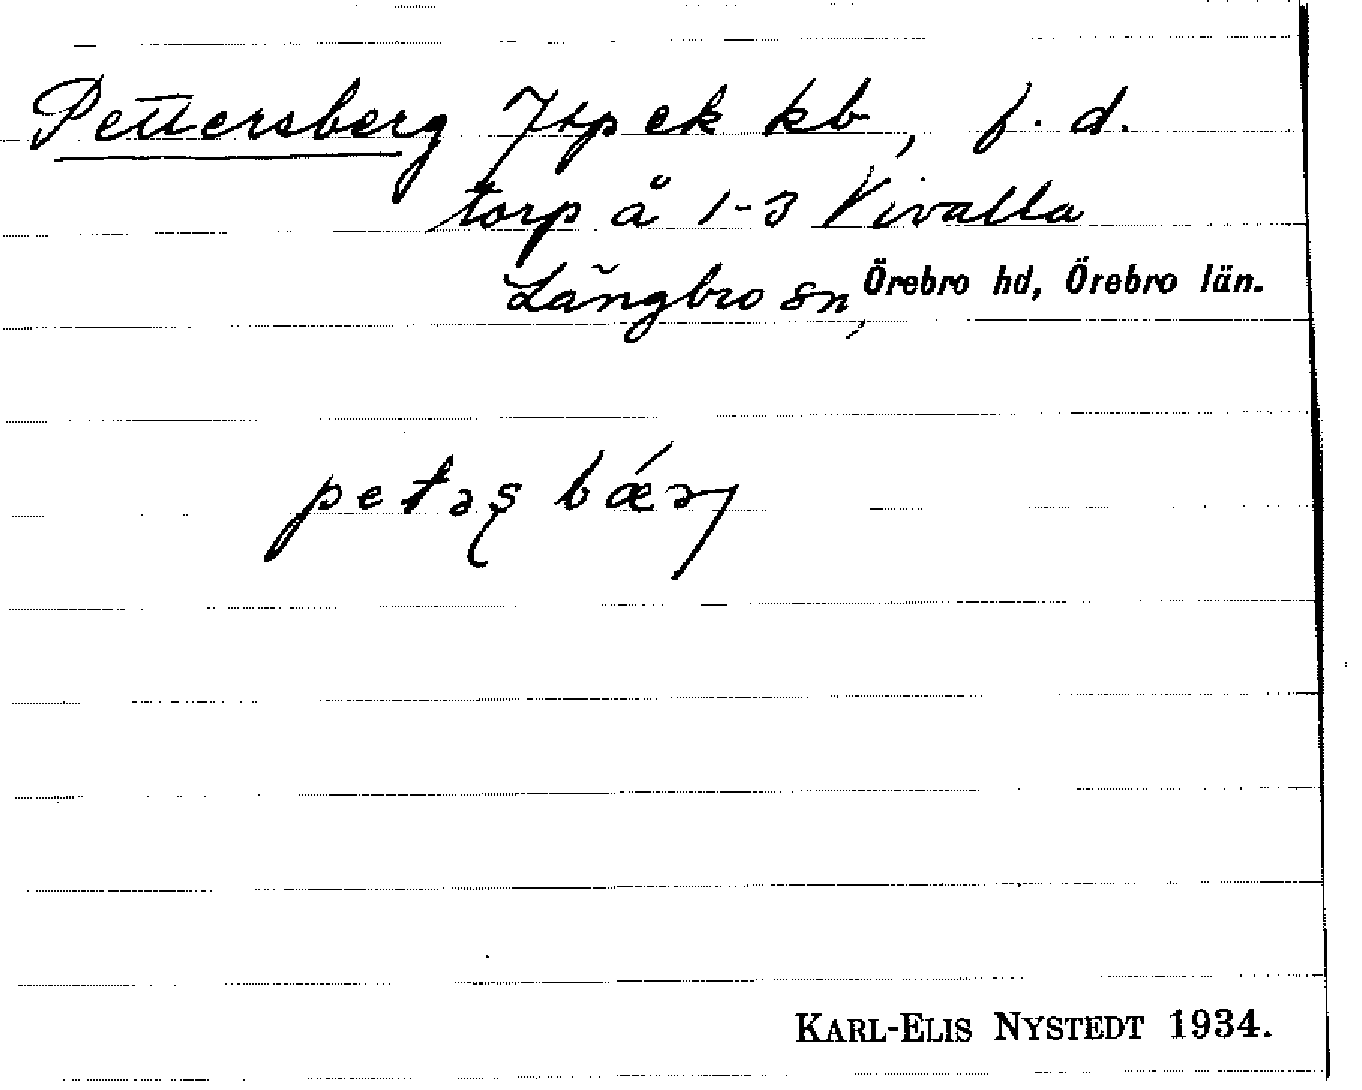 Pettersberg Trp ek kb, f. d.
torp å 1-3 Vivalla
Långbro sn, Örebro hd, Örebro län.
petəʂ bǽrj
KARL-ELIS NYSTEDT 1934.